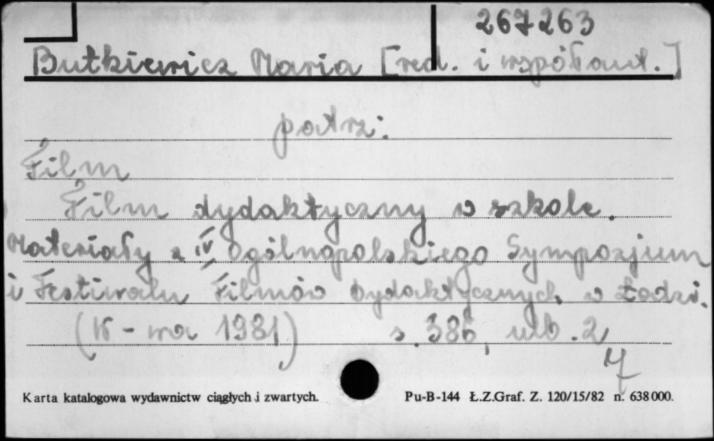 267263
Butkiewicz Maria [red. i współaut.]
patrz:
Film
Film dydaktyczny w szkole.
Materiały z IV Ogólnopolskiego Sympozjum
i Festiwalu Filmów Dydaktycznych w Łodzi.
(W-wa 1981) s. 386, nlb. 2
Karta katalogowa wydawnictw ciągłych i zwartych. Pu-B-144 Ł.Z.Graf. Z. 120/15/82 n. 638000.